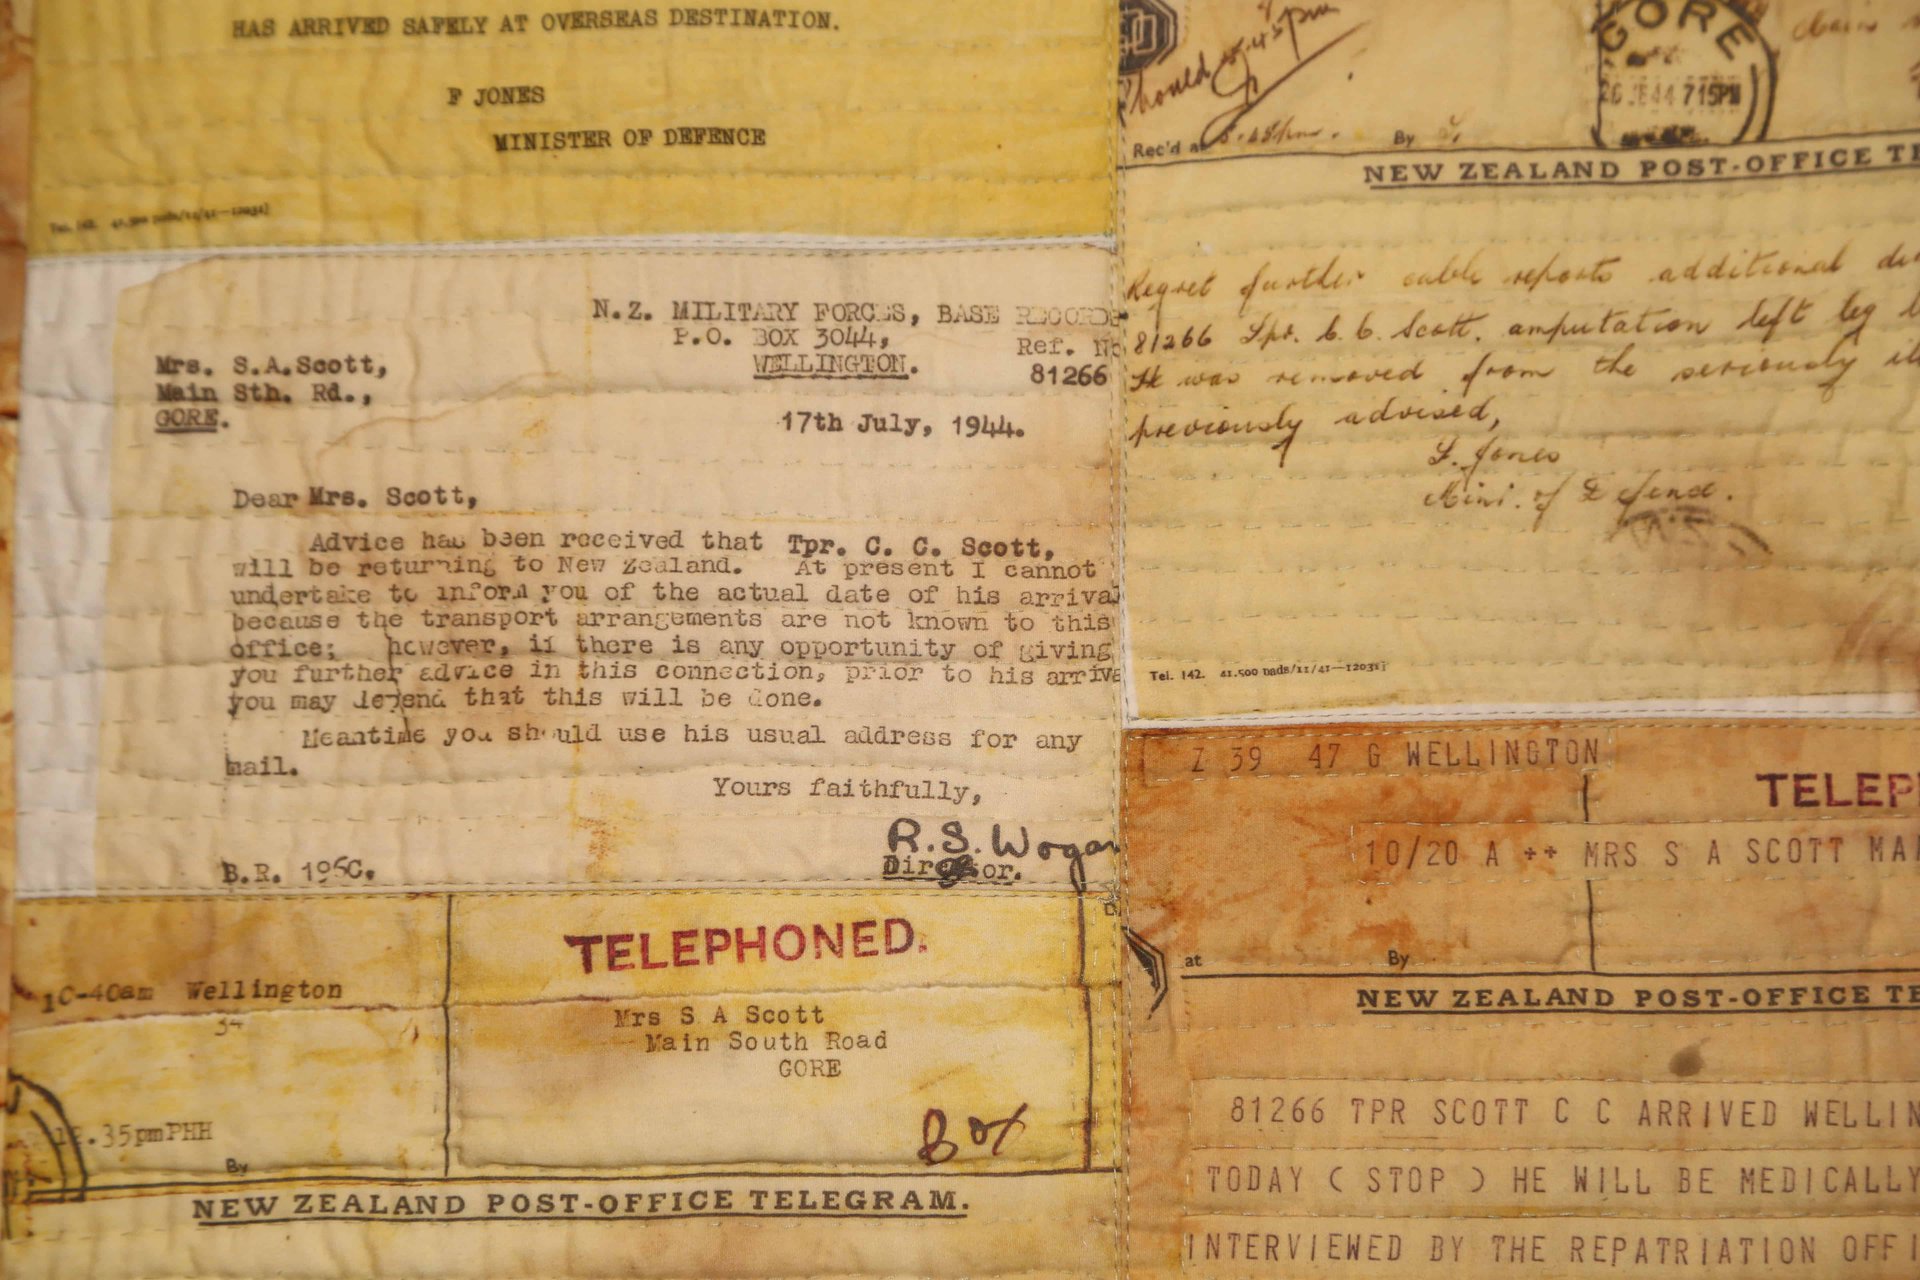 HAS ARRIVED SAFELY AT OVERSEAS DESTINATION.
F JONES
MINISTER OF DEFENCE
Tel. 142. 41.500 pads/11/41—12031]
N.Z. MILITARY FORCES, BASE RECORDS
P.O. BOX 3044,
WELLINGTON.
Ref. No
81266
Mrs. S.A.Scott,
Main Sth. Rd.,
GORE.
17th July, 1944.
Dear Mrs. Scott,
Advice has been received that Tpr. C. C. Scott,
will be returning to New Zealand. At present I cannot
undertake to inform you of the actual date of his arrival
because the transport arrangements are not known to this
office; however, if there is any opportunity of giving
you further advice in this connection, prior to his arriva
you may depend that this will be done.
Meantime you should use his usual address for any
mail.
Yours faithfully,
R.S. Wogan
Director.
B.R. 196C.
TELEPHONED.
10-40am Wellington
34
Mrs S A Scott
Main South Road
GORE
.35pmPHH
By
NEW ZEALAND POST-OFFICE TELEGRAM.
5.45pm
GORE
715PM
Rec'd at
By
NEW ZEALAND POST-OFFICE TE
Regret further cable reports additional
81266 Tpr. C. C. Scott. amputation left leg
He was removed from the seriously
previously advised,
F. Jones
Mini. of Defence.
Tel. 142. 41.500 pads/11/41—12031]
Z 39 47 G WELLINGTON
TELEP
10/20 A ++ MRS S A SCOTT MA
at
By
NEW ZEALAND POST-OFFICE TE
81266 TPR SCOTT C C ARRIVED WELLIN
TODAY ( STOP ) HE WILL BE MEDICALLY
INTERVIEWED BY THE REPATRIATION OFFI